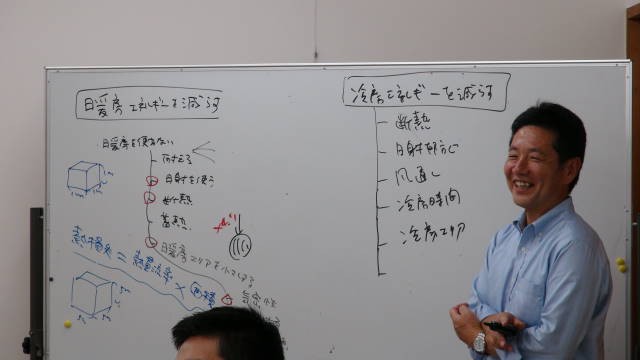 暖房エネルギーを減らす
暖房を使わない
日射を使う
断熱
蓄熱
暖房エリアを小さくする
熱損失 = 熱貫流率 × 面積
冷房エネルギーを減らす
断熱
日射
風通し
冷房時間
冷房エリア